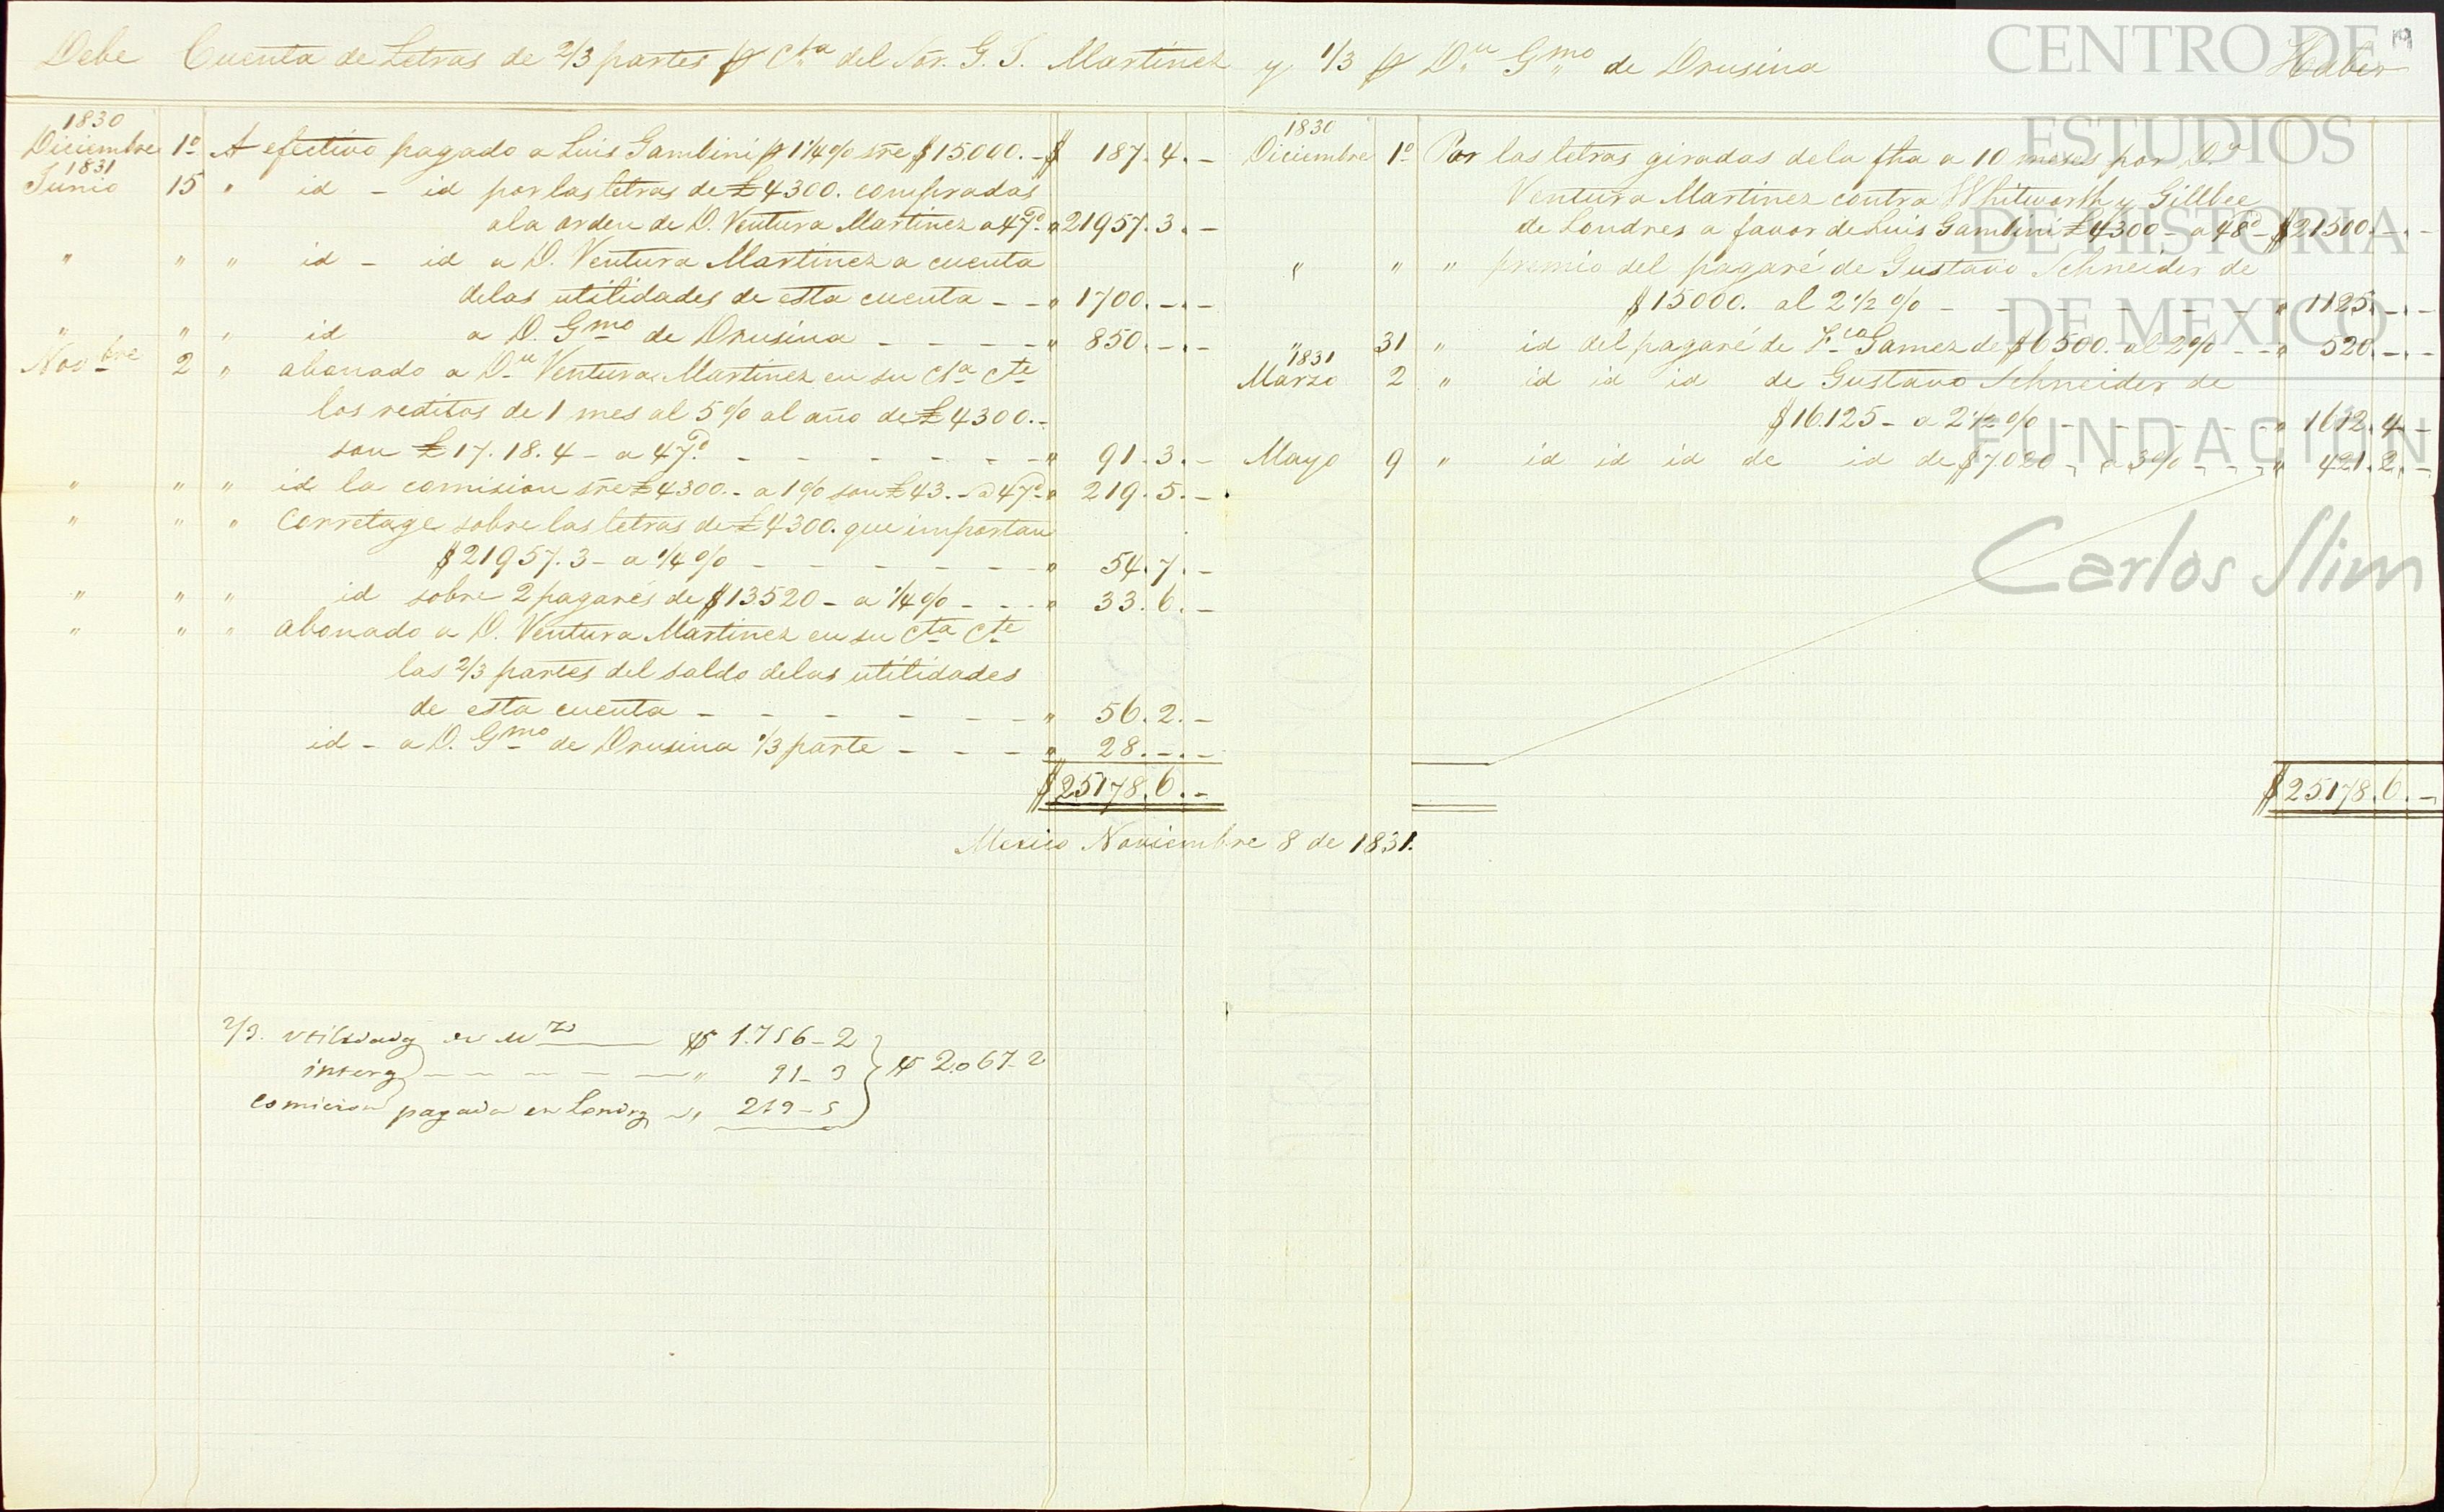 Debe Cuenta de Letras de 2/3 partes p Cta del Sor. G. J. Martinez y 1/3 p Dn Gmo de Drusina Haber
1830
Diciembre 1º A efectivo pagado a Luis Gambini p 1 1/4 % sre $ 15.000. - $ 187. 4. -
1831
Junio 15 " id - id por las letras de £ 4300. compradas
a la orden de D. Ventura Martinez a 47d. " 21957. 3. -
" " " id - id a D. Ventura Martinez a cuenta
de las utilidades de esta cuenta - - " 1700. -. -
" " " id a D. Gmo de Drusina - - - - - " 850. -. -
Novbre 2 " abonado a Dn Ventura Martinez en su Cta Cte
los reditos de 1 mes al 5 % al año de £ 4300. -
son £ 17. 18. 4 - a 47d. - - - - - - - " 91. 3. -
" " " id la comision sre £ 4300. - a 1 % son £ 43. - a 47d " 219. 5. -
" " " Corretage sobre las letras de £ 4300. que importan
$ 21957. 3 - a 1/4 % - - - - - - - " 54. 7. -
" " " id sobre 2 pagarés de $ 13520 - a 1/4 % - - - " 33. 6. -
" " " abonado a D. Ventura Martinez en su Cta Cte
las 2/3 partes del saldo de las utilidades
de esta cuenta - - - - - - - " 56. 2. -
id - a D. Gmo de Drusina 1/3 parte - - - " 28. -. -
$ 25178. 6. -
1830
Diciembre 1º Por las letras giradas de la fha a 10 meses por Dn
Ventura Martinez contra Whitworth y Gillbee
de Londres a favor de Luis Gambini £ 4300 - a 48d - $ 21500. -. -
" " " premio del pagaré de Gustavo Schneider de
$ 15000. al 2 1/2 % - - - - - - - " 1125. -. -
" 31 " id del pagaré de Fco Gamez de $ 6500. al 2 % - - " 520. -. -
1831
Marzo 2 " id id id de Gustavo Schneider de
$ 16.125 - a 2 1/2 % - - - - - - " 1612. 4. -
Mayo 9 " id id id de id de $ 7.020 - a 3 % - - - " 421. 2. -
$ 25178. 6. -
Mexico Noviembre 8 de 1831.
2/3. $ 1.756 - 2
" 91 - 3 } $ 2.067 - 2
comicion pagada en " 219 - 5
CENTRO DE
ESTUDIOS
DE HISTORIA
DE MEXICO
FUNDACION
Carlos Slim